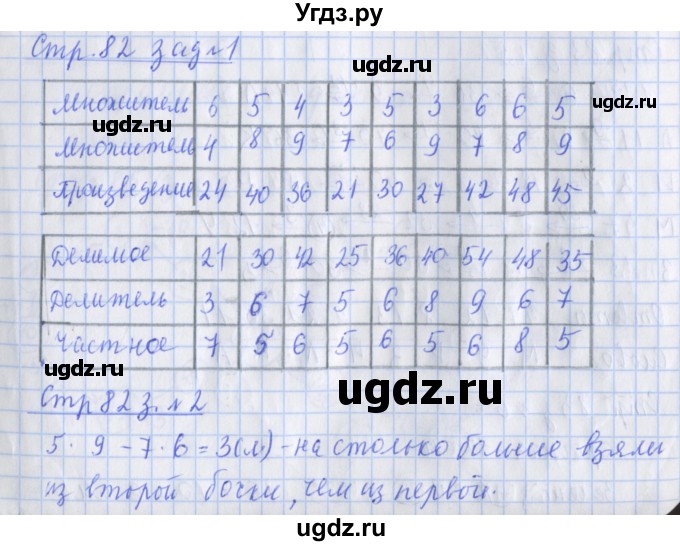 Угдз.ру
Стр. 82 зад №1
ugdz.ru
Множитель 6 5 4 3 5 3 6 6 5
ugdz.ru
ugdz.ru
Множитель 4 8 9 7 6 9 7 8 9
Произведение 24 40 36 21 30 27 42 48 45
ugdz.ru
Делимое 21 30 42 25 36 40 54 48 35
Делитель 3 6 7 5 6 8 9 6 7
Частное 7 5 6 5 6 5 6 8 5
ugdz.ru
ugdz.ru
ugdz.ru
Стр 82 з. №2
5 · 9 - 7 · 6 = 3(л) - на столько больше взяли
из второй бочки, чем из первой.
ugdz.ru
ugdz.ru